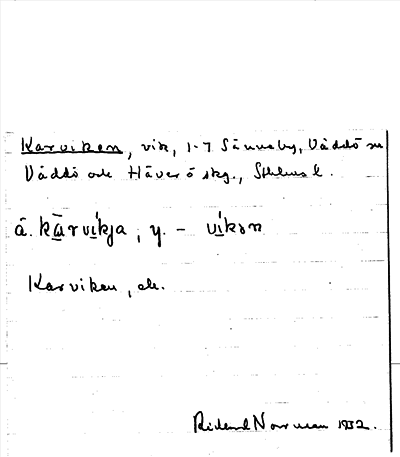 Karviken, vik, 1-7 Sänneby, Väddö sn
Väddö och Häverö skg., Sthlms l.
ä. kārvikja, y. - vikən
Karviken, ek.
Rickard Norrman 1932.